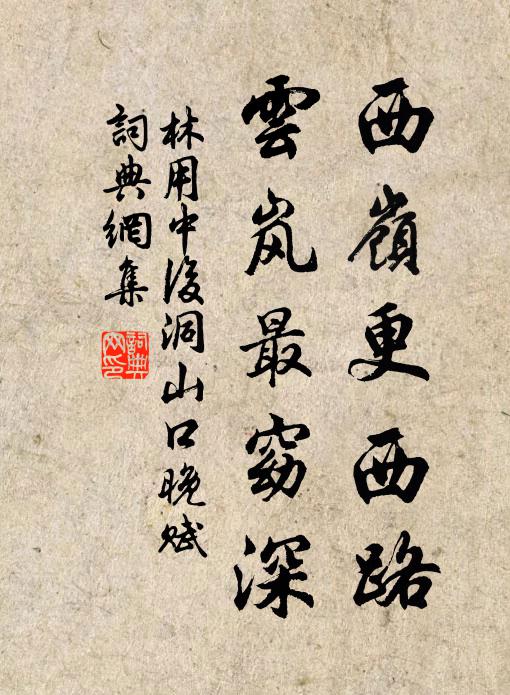 西嶺更西路
雲岚最窈深
林用中後洞山口晚赋
詞典網集
詞典網印